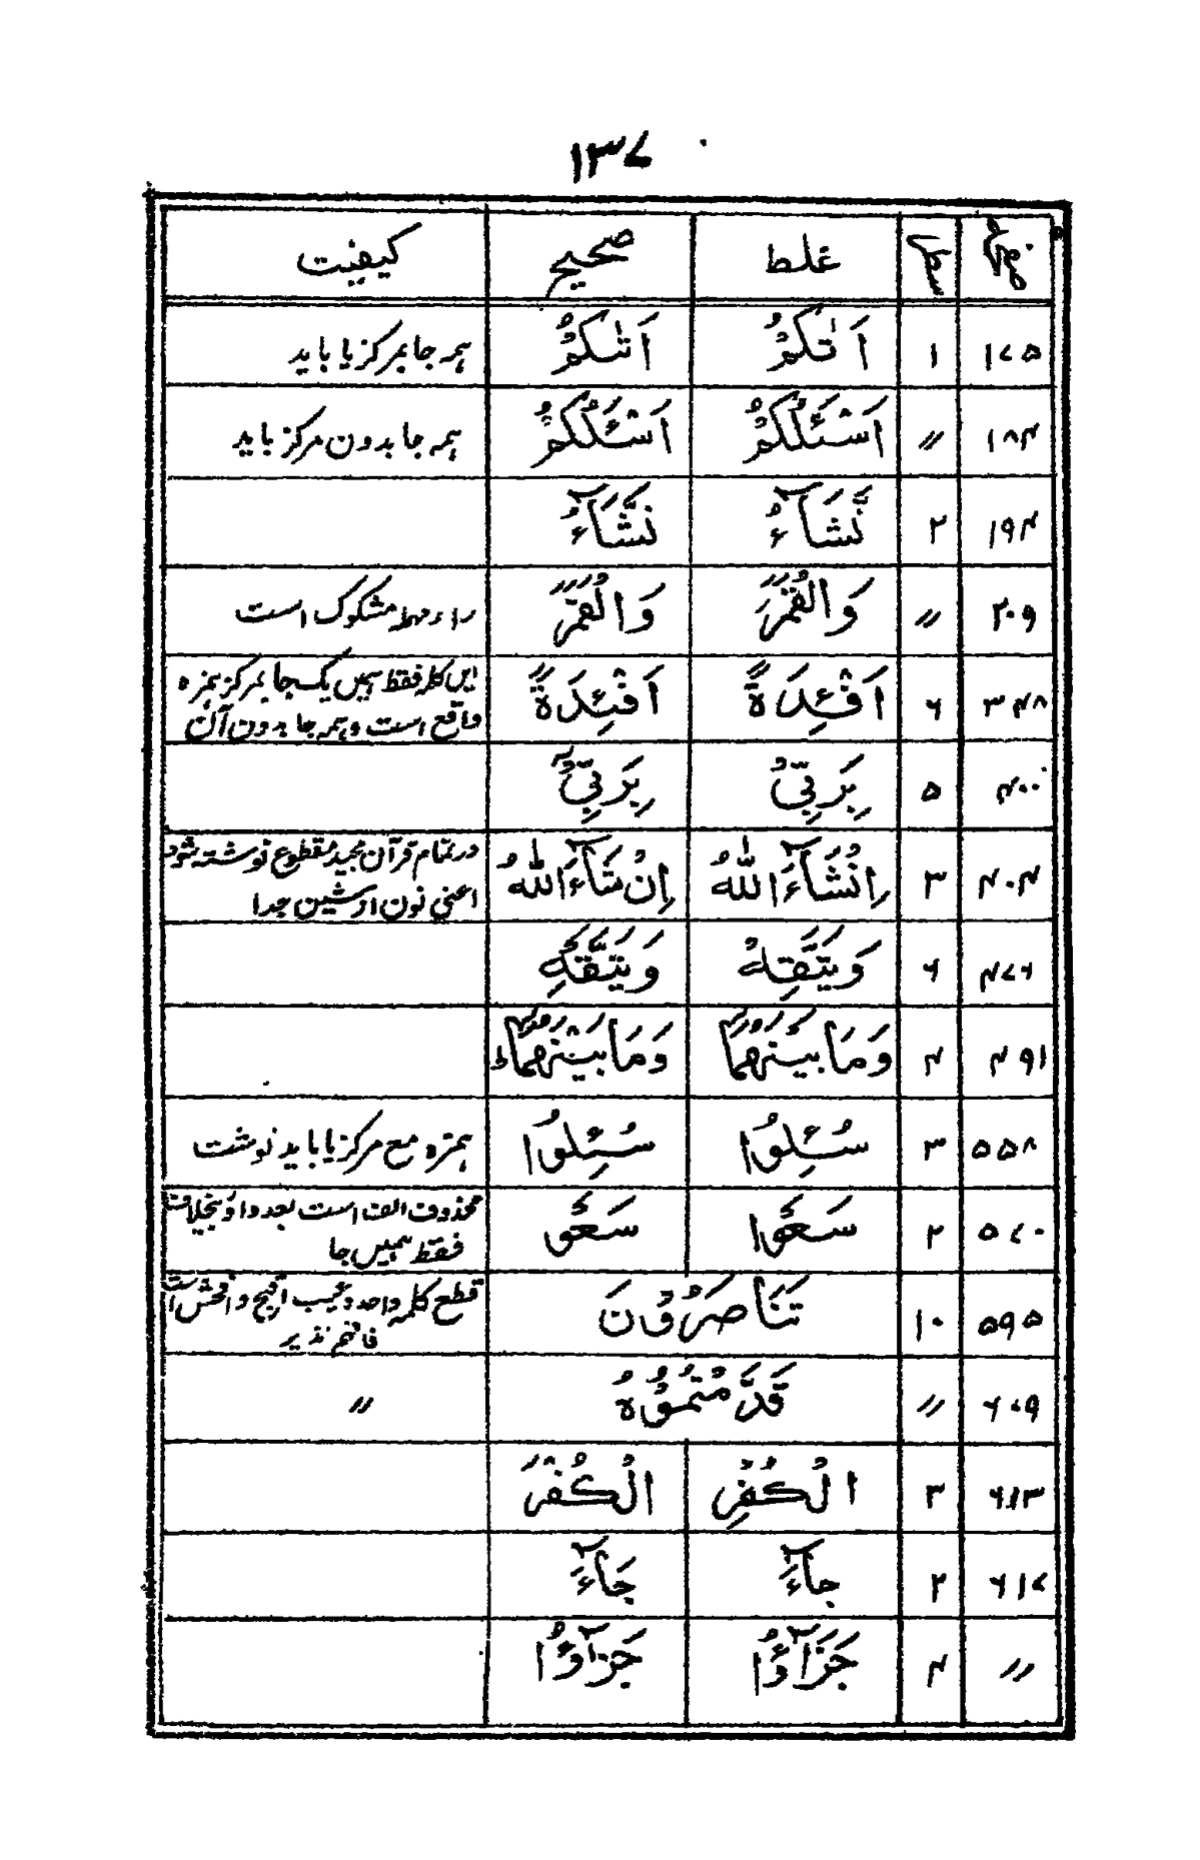 ۱۳۷
صفحہ سطر غلط صحیح کیفیت
۱۷۵ ۱ اَ تٰکُمْ اَتٰکُمْ ہمہ جا بمرکز یا باید
۱۸۴ // اَسْئَلُکُمْ اَسْئَلُکُمْ ہمہ جا بدون مرکز باید
۱۹۴ ۲ نَّشَآءُ نَّشَآءُ
۲۰۹ // وَالْقَمَرَ وَالْقَمَرَ راء مہملہ مشکوک است
۳۴۸ ۶ اَفْـِٕدَةً اَفْئِدَةً ایں کلمہ فقط ہمیں یک جا بمرکز ہمزہ
واقع است و ہمہ جا بدون آن
۴۰۰ ۵ بِرَبِّیْ بِرَبِّیْٓ
۴۰۴ ۳ اِنْشَآءَ اللّٰهُ اِنْ شَآءَ اللّٰهُ در تمام قرآن مجید مقطوع نوشتہ شود
اعنی نون او شین جدا
۴۷۶ ۶ وَیَتَّقِهْ وَیَتَّقْهِ
۴۹۱ ۴ وَمَا بَیْنَهُمَا وَمَا بَیْنَهُمَاء
۵۵۸ ۳ سُـِٕلُوا سُئِلُوا ہمزہ مع مرکز یا باید نوشت
۵۷۰ ۲ سَعَوْا سَعَوْ محذوف الف است بعد واو
فقط ہمیں جا
۵۹۵ ۱۰ تَنَا صَرُوْنَ قطع کلمہ واحد و اقبح و افحش است
۶۰۹ // قَدَّ مْتُمُوْهُ //
۶۱۳ ۳ الْکُفْرِ الْکُفْرَ
۶۱۷ ۲ جَآءَ جَآءَ
// ۴ جَزَآؤُا جَزٰٓؤُا